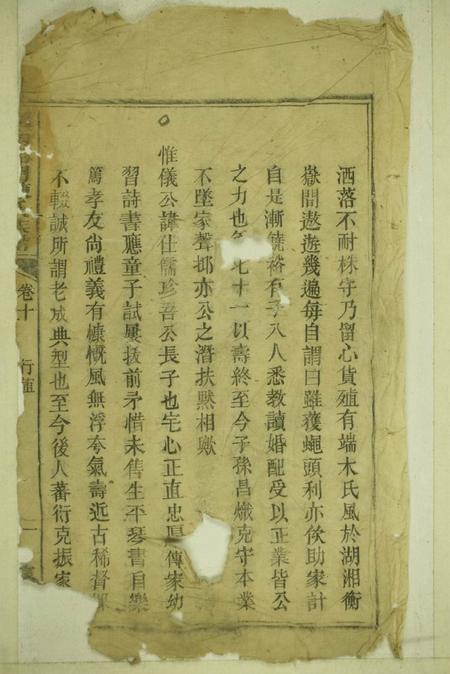 洒落不耐株守乃留心貨殖有端木氏風於湖湘衡
嶽間遨遊幾遍每自謂曰雖獲蠅頭利亦俟助家計
自是漸饒裕有子八人悉教讀婚配受以正業皆公
之力也七十一以壽終至今子孫昌熾克守本業
不墜家聲抑亦公之潛扶黙相歟
惟儀公諱仕儒珍吾公長子也宅心正直忠厚傳家幼
習詩書應童子試屢拔前矛惜未售生平琴書自樂
篤孝友尚禮義有慷慨風無浮夸氣壽近古稀督
不輟誠所謂老成典型也至今後人蕃衍克振家
卷十
行
一